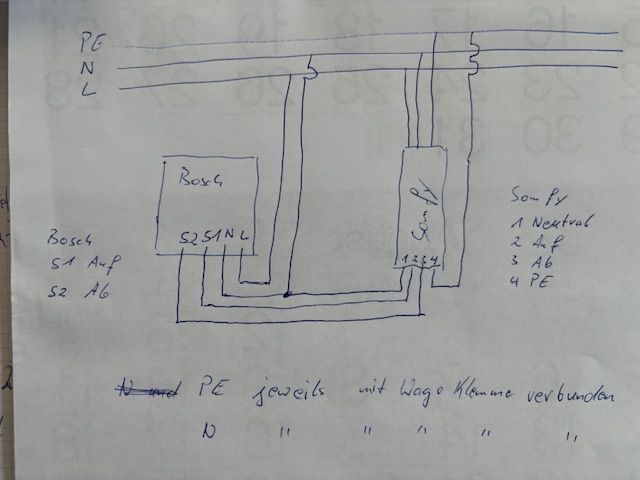 PE
N
L
Bosch
S2 S1 N L
Somfy
1 2 3 4
Bosch
S1 Auf
S2 Ab
Somfy
1 Neutral
2 Auf
3 Ab
4 PE
N und PE jeweils mit Wago Klemme verbunden
N " " " " "